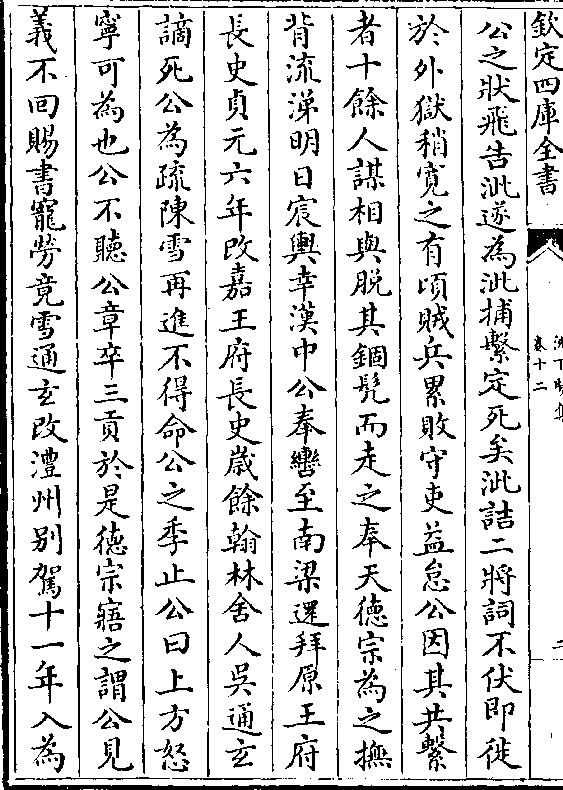 欽定四庫全書
卷十二
二
公之狀飛告泚遂為泚捕繫定死矣泚詰二將詞不伏即徙
於外獄稍寛之有頃賊兵累敗守吏益怠公因其共繫
者十餘人謀相與脱其錮髠而走之奉天德宗為之撫
背流涕明日宸輿幸漢中公奉轡至南梁還拜原王府
長史貞元六年改嘉王府長史歲餘翰林舍人吳通玄
謫死公為疏陳雪再進不得命公之季止公曰上方怒
寧可為也公不聽公章卒三貢於是德宗寤之謂公見
義不回賜書寵勞竟雪通玄改澧州别駕十一年入為